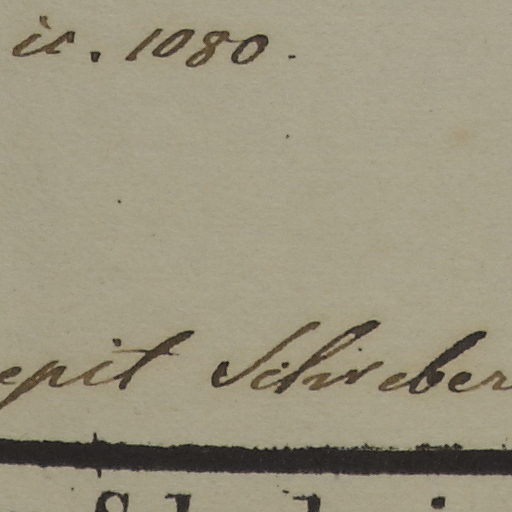 ic. 1080.
epit Schreber